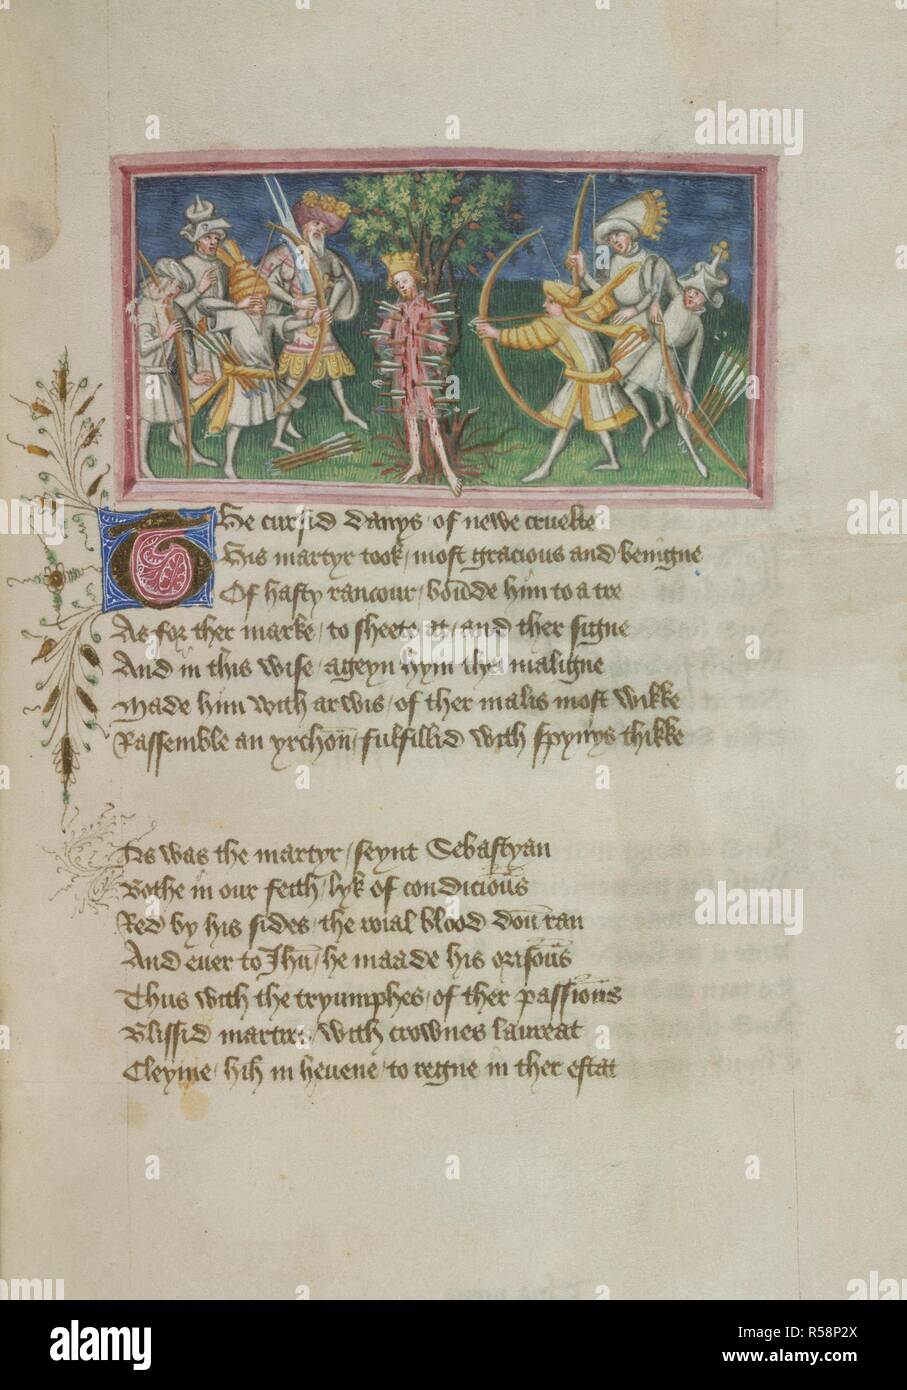 The cursid Danys of newe cruelte
This martyr took most gracious and benigne
Of hasty rancour bounde him to a tre
As for ther marke to sheete at and ther signe
And in this wise ageyn hym thei maligne
Made him with arwis of ther malis most wikke
Rassemble an yrchoun fulfillid with spynys thikke
As was the martyr seynt Sebastyan
Bothe in our feith lyk of condiciouns
Red by his sides the roial blood doun ran
And euer to Jhu he maade his orisouns
Thus with the tryumphes of ther passiouns
Blissid martirs with crownes laureat
Cleyme hih in heuene to regne in ther estat
alamy
a alamy stock photo
Image ID: R58P2X
www.alamy.com